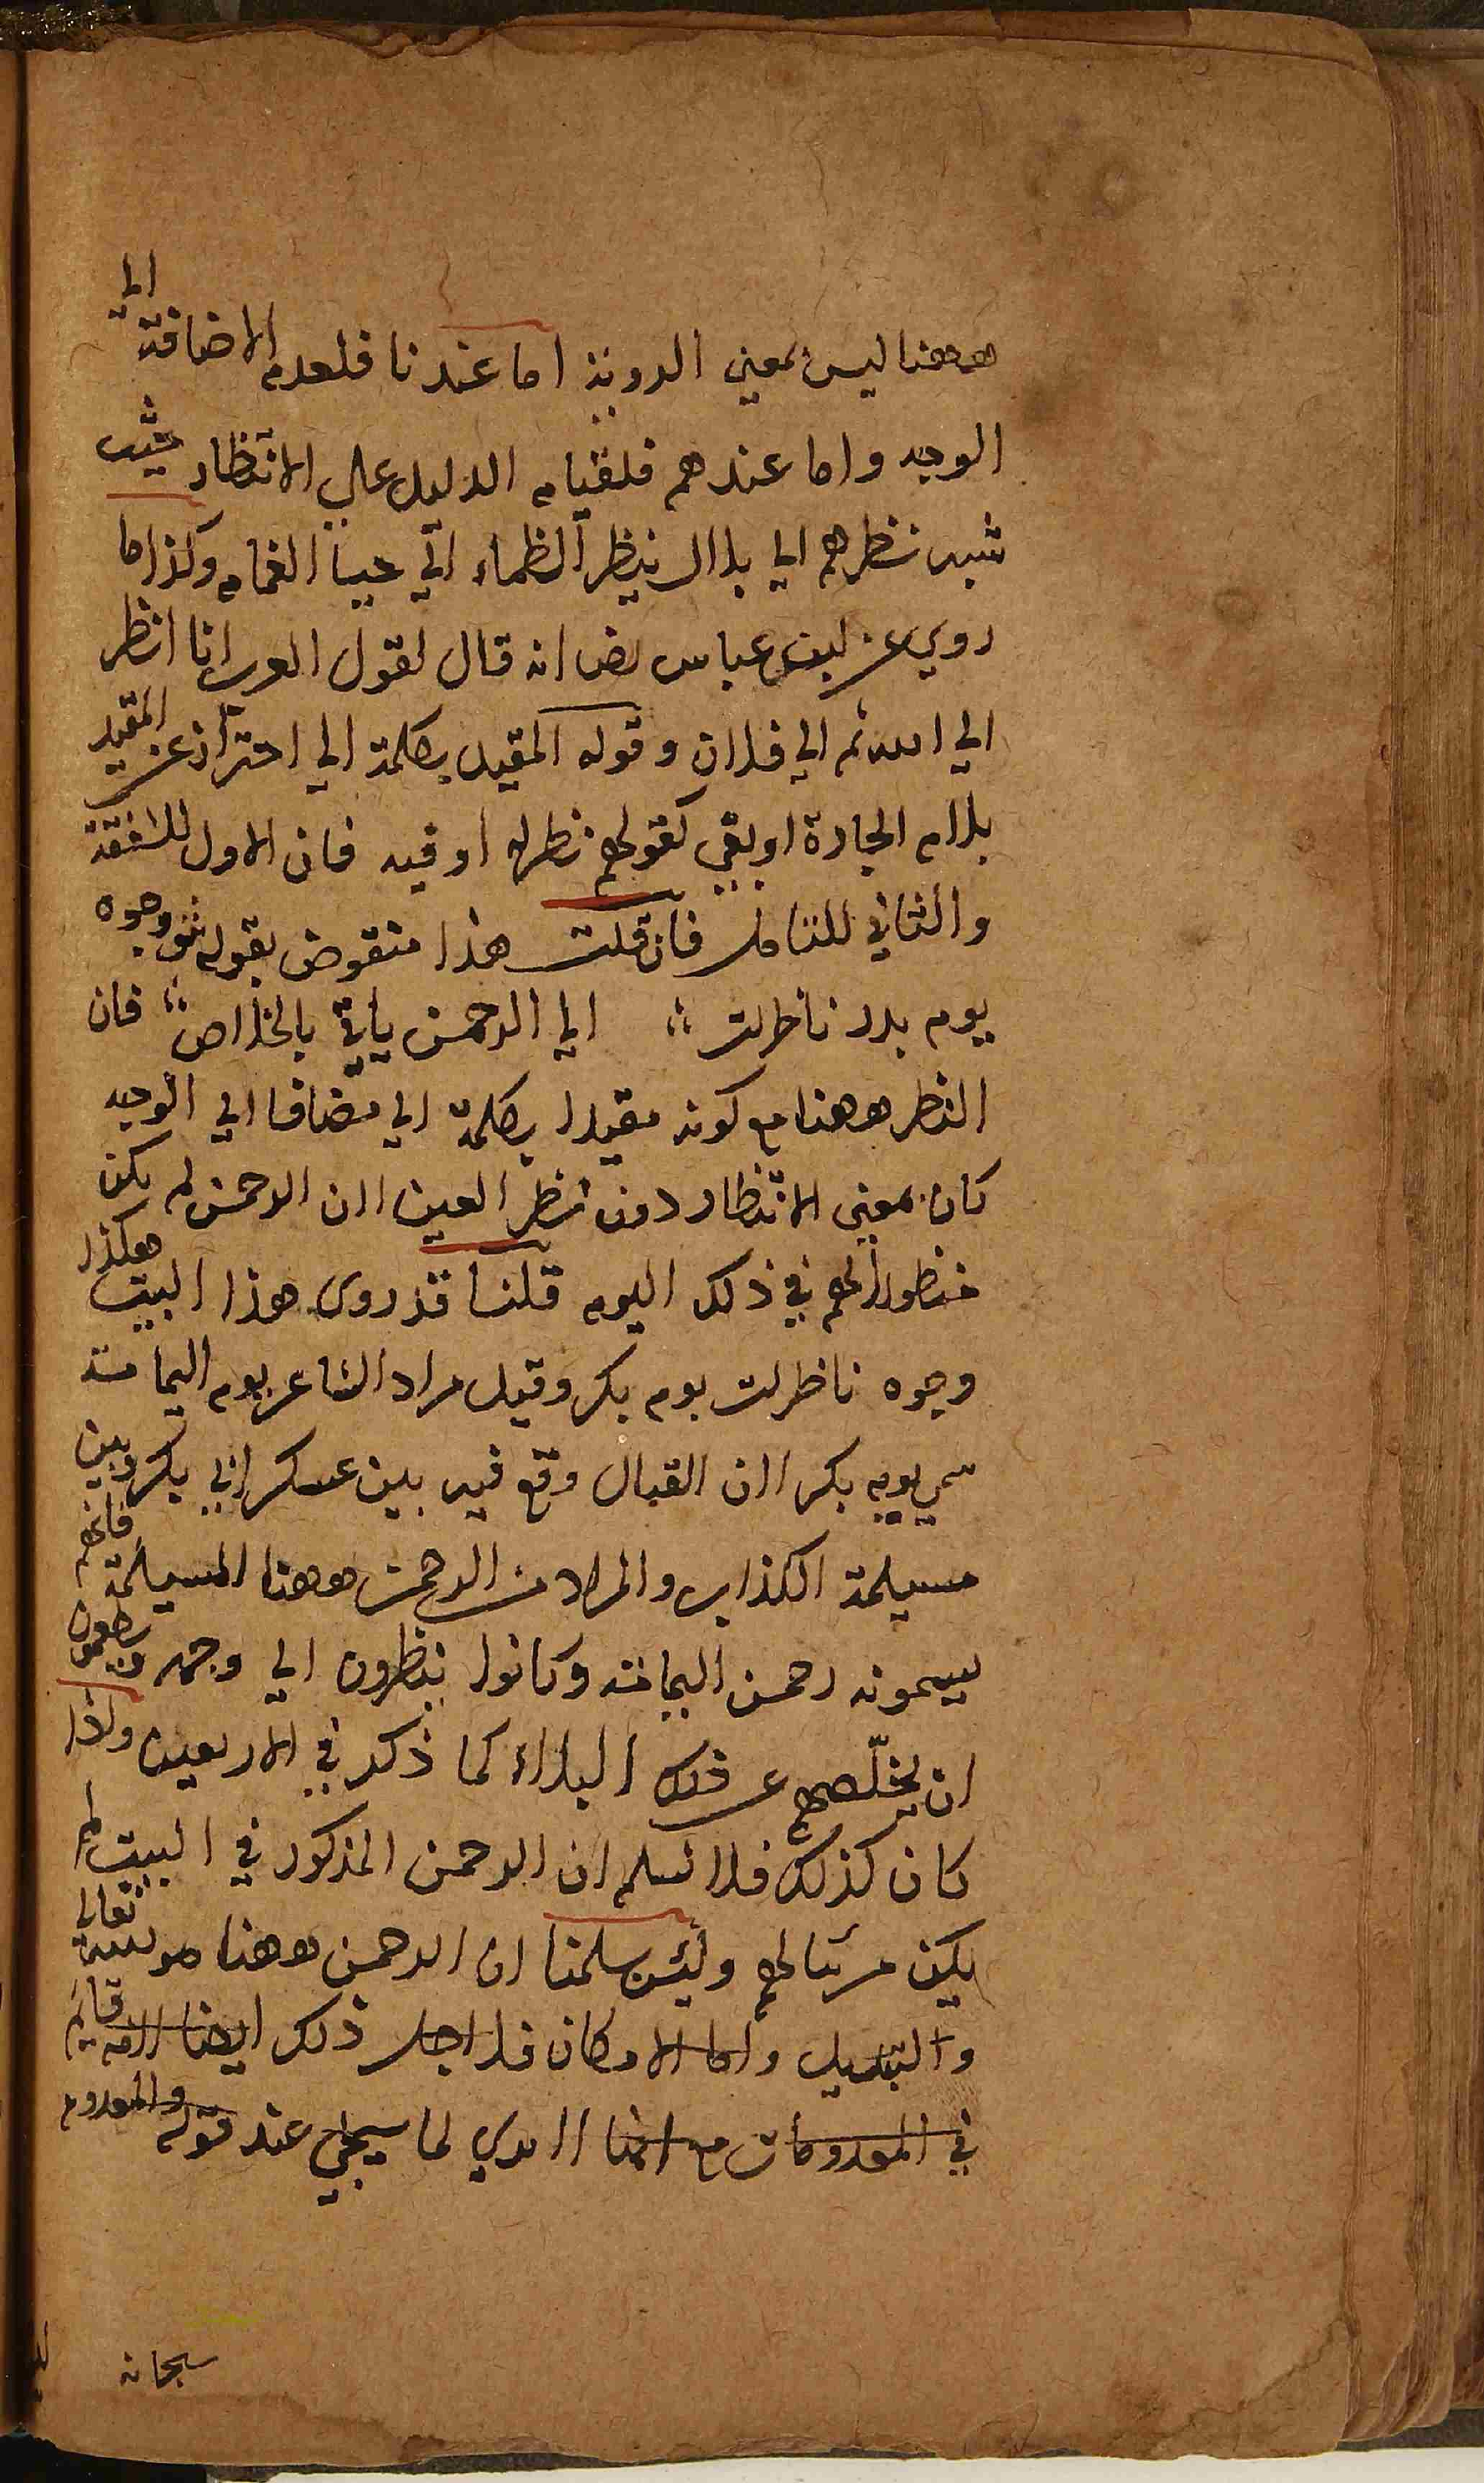 ههنا ليس بمعنى الروية اما عندنا فلعدم الاضافة الى
الوجه واما عندهم فلقيام الدليل على الانتظار حيث
شبه نظرهم الى بلال بنظر الظماء الى حيا الغمام وكذا ما
روي عن ابن عباس رض انه قال لقول العرب انا انظر
الى الله ثم الى فلان وقوله المقيد بكلمة الى احتراز عن المقيد
بلام الجارة او بفي كقولهم نظر له او فيه فان الاول للشفقة
والثاني للتامل فان قلت هذا منقوض بقوله وجوه
يوم بدر ناظرات الى الرحمن يأتي بالخلاص فان
النظر ههنا مع كونه مقيدا بكلمة الى مضافا الى الوجه
كان بمعنى الانتظار دون نظر العين لان الرحمن لم يكن
منظورا لهم في ذلك اليوم قلنا قد روى هذا البيت هكذا
وجوه ناظرات يوم بكر وقيل مراد الشاعر يوم اليمامة
سمي يوم بكر لان القتال وقع فيه بين عسكر ابي بكر وبين
مسيلمة الكذاب والمراد من الرحمن ههنا المسيلمة فانهم
يسمونه رحمن اليمامة وكانوا ينظرون الى وجهه ويطمعون
ان يخلّصهم عن ذلك البلاء كما ذكر في الاربعين ولذا
كان كذلك فلا نسلم ان الرحمن المذكور في البيت لم
يكن مرئيا لهم ولئن سلمنا ان الرحمن ههنا هو الله تعالى
والتبديل واما الامكان فلاجل ذلك ايضا لانه قايم
في المعدومات مع انها لا يرى لما سيجئ عند قوله والمعدوم
سبحانه